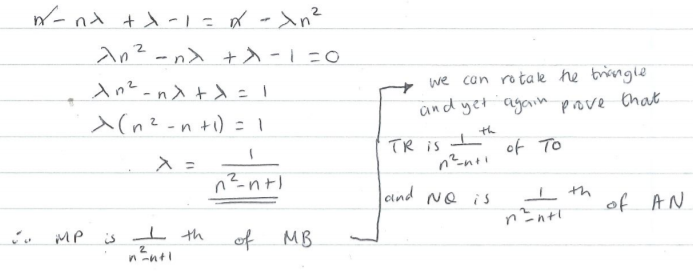 n - nλ + λ - 1 = n - λn²
λn² - nλ + λ - 1 = 0
λn² - nλ + λ = 1
λ(n² - n + 1) = 1
λ = 1/(n²-n+1)
∴ MP is 1/(n²-n+1) th of MB
we can rotate the triangle
and yet again prove that
TR is 1/(n²-n+1) th of TO
and NQ is 1/(n²-n+1) th of AN